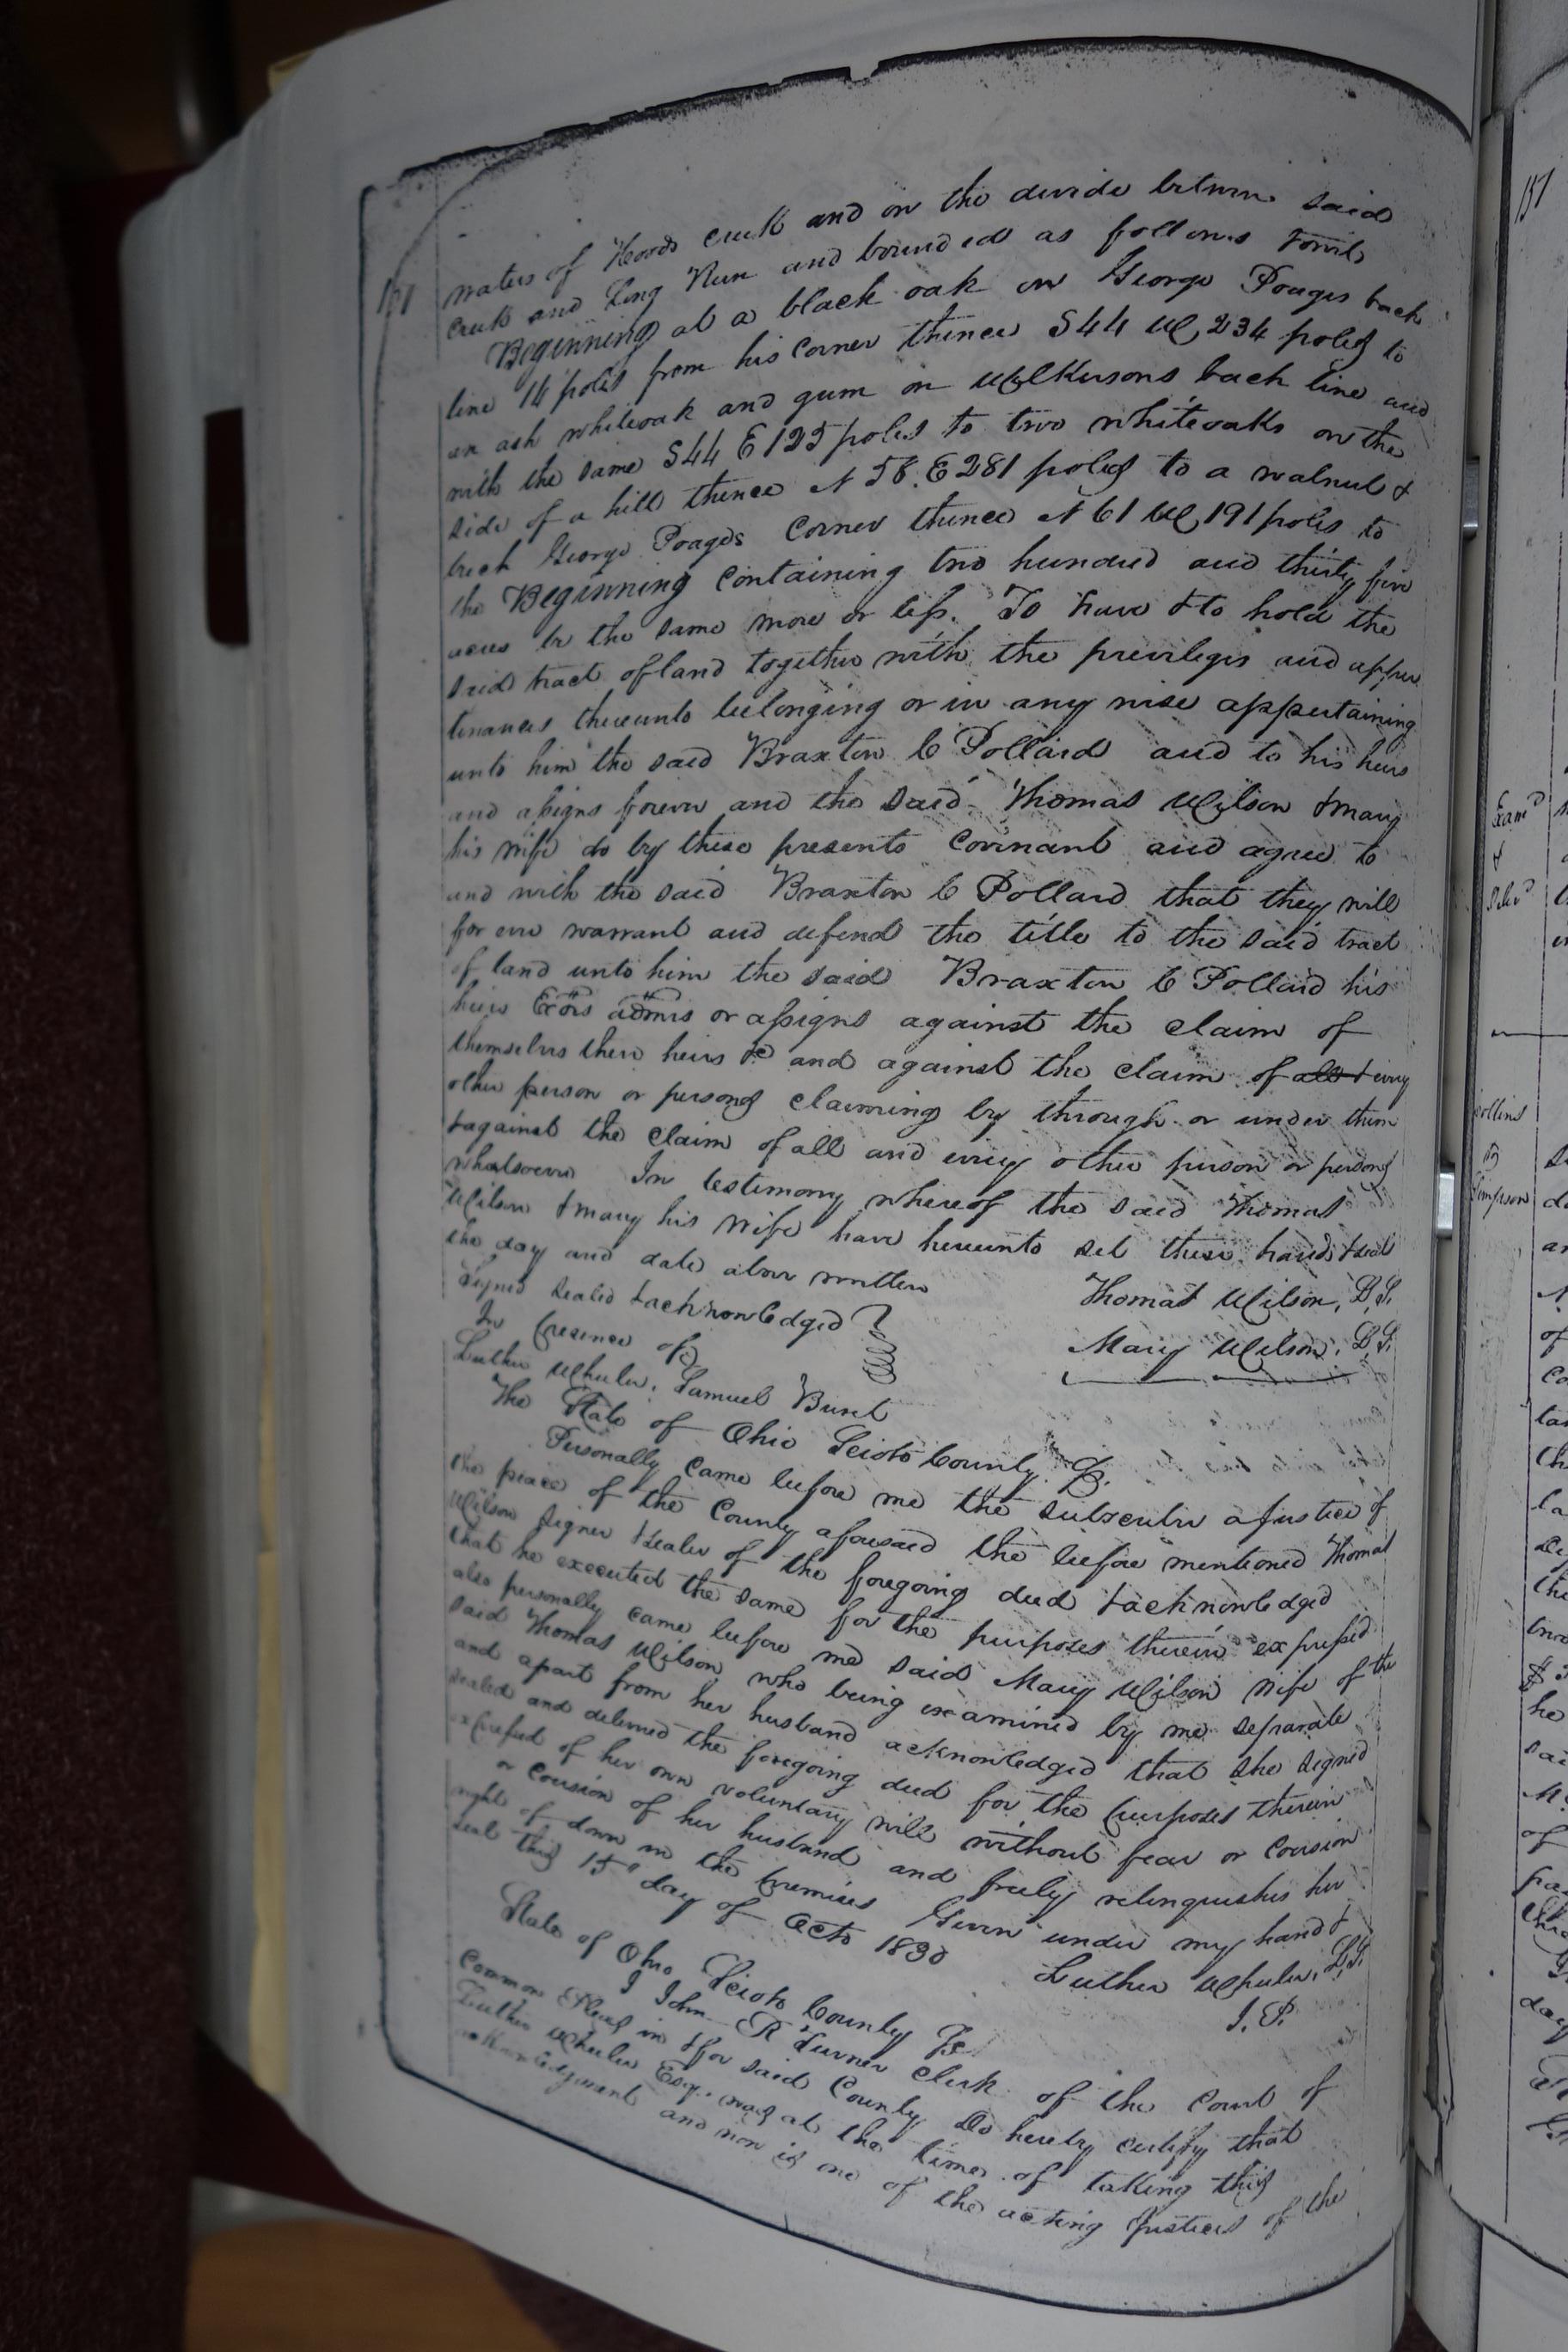 151
waters of Hoods creek and on the devide between said
creek and Long Run and bounded as follows towit
Beginning at a black oak on George Poages back
line 14 poles from his corner thence S44 W 234 poles to
an ash whiteoak and gum on Wilkersons back line and
with the same S44 E 125 poles to two whiteoaks on the
side of a hill thence N 58 E 281 poles to a walnut &
beech George Poages corner thence N 61 W 191 poles to
the Beginning containing two hundred and thirty five
acres be the same more or less. To have & to hold the
said tract of land together with the previleges and appur
tenances thereunto belonging or in any wise appertaining
unto him the said Braxton C Pollard and to his heirs
and assigns forever and the said Thomas Wilson & Mary
his wife do by these presents covenant and agree to
and with the said Braxton C Pollard that they will
for ever warrant and defend the title to the said tract
of land unto him the said Braxton C Pollard his
heirs Exors admrs or assigns against the claim of
themselves their heirs &c and against the claim of all & every
other person or persons claiming by through or under them
& against the claim of all and every other person or persons
whatsoever In testimony whereof the said Thomas
Wilson & Mary his wife have hereunto set these hands & seal
the day and date above written
Signed sealed & acknowledged
In presence of
Thomas Wilson, L.S.
Mary Wilson, L.S.
Luther Wheeler, Samuel Burt
The State of Ohio Scioto County Ss.
Personally came before me the subscriber a justice of
the peace of the County aforesaid the before mentioned Thomas
Wilson signer & sealer of the foregoing deed & acknowledged
that he executed the same for the purposes therein expressed
also personally came before me said Mary Wilson wife of the
said Thomas Wilson who being examined by me separate
and apart from her husband acknowledged that she signed
sealed and delivered the foregoing deed for the purposes therein
expressed of her own voluntary will without fear or coersion
or coersion of her husband and freely relinquishes her
right of dower in the premises Given under my hand &
seal this 15th day of Octo 1830
Luther Wheeler, L.S.
J. P.
State of Ohio Scioto County Ss
I John R Turner Clerk of the Court of
Common Pleas in & for said County Do hereby certify that
Luther Wheeler Esq. was at the time of taking this
acknowledgment and now is one of the acting Justices of the
151
Exam'd
&
Deliv'd
Collins
Simpson